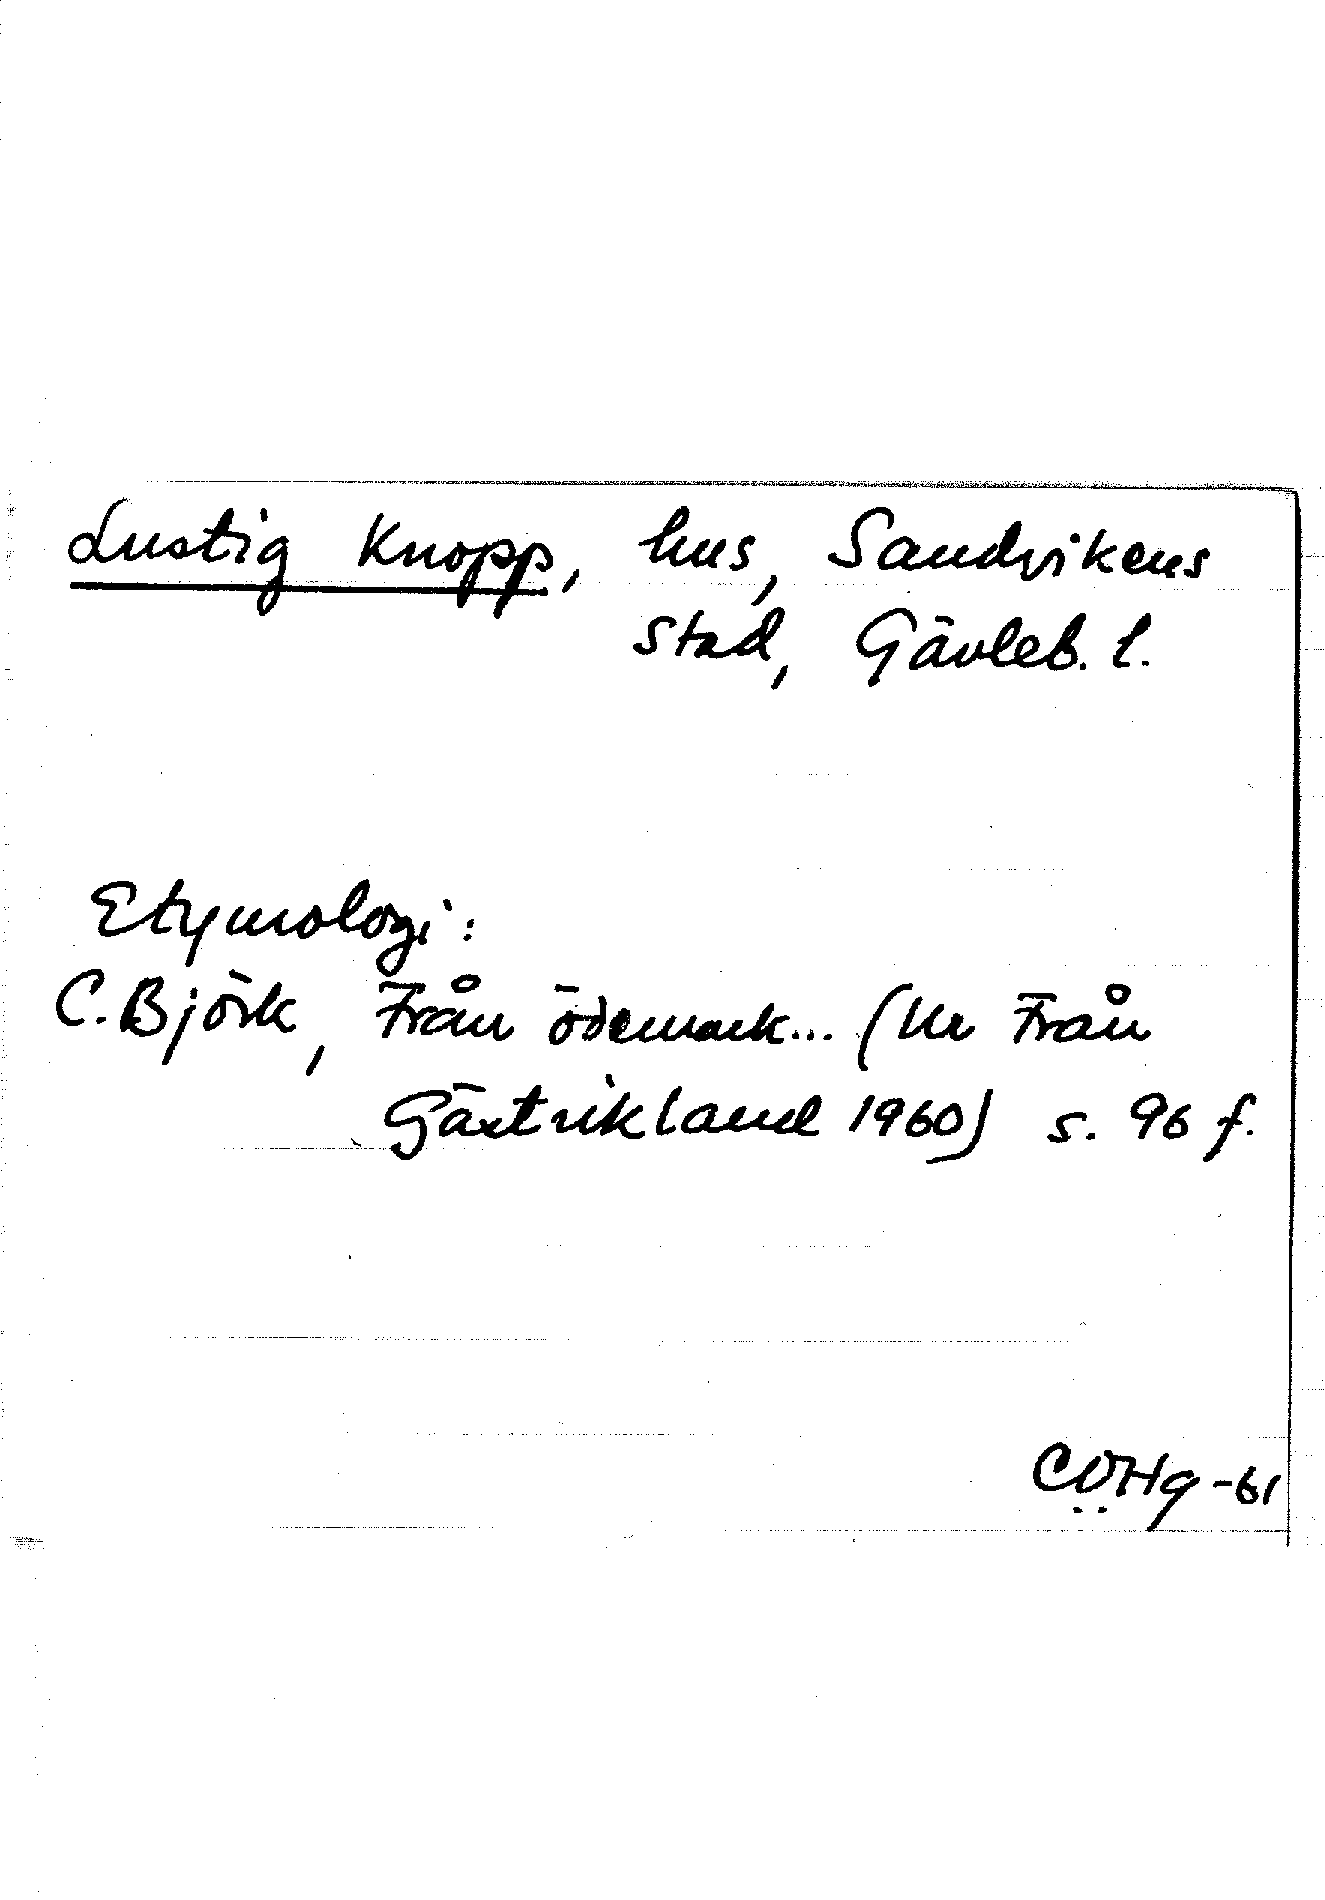 Lustig Knopp, hus, Sandvikens
stad, Gävleb. l.
Etymologi:
C. Björk, Från ödemark... (Ur Från
Gästrikland 1960) s. 96 f.
CÖHg -61